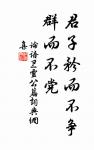 君子矜而不争
群而不党
论语卫灵公篇词典网